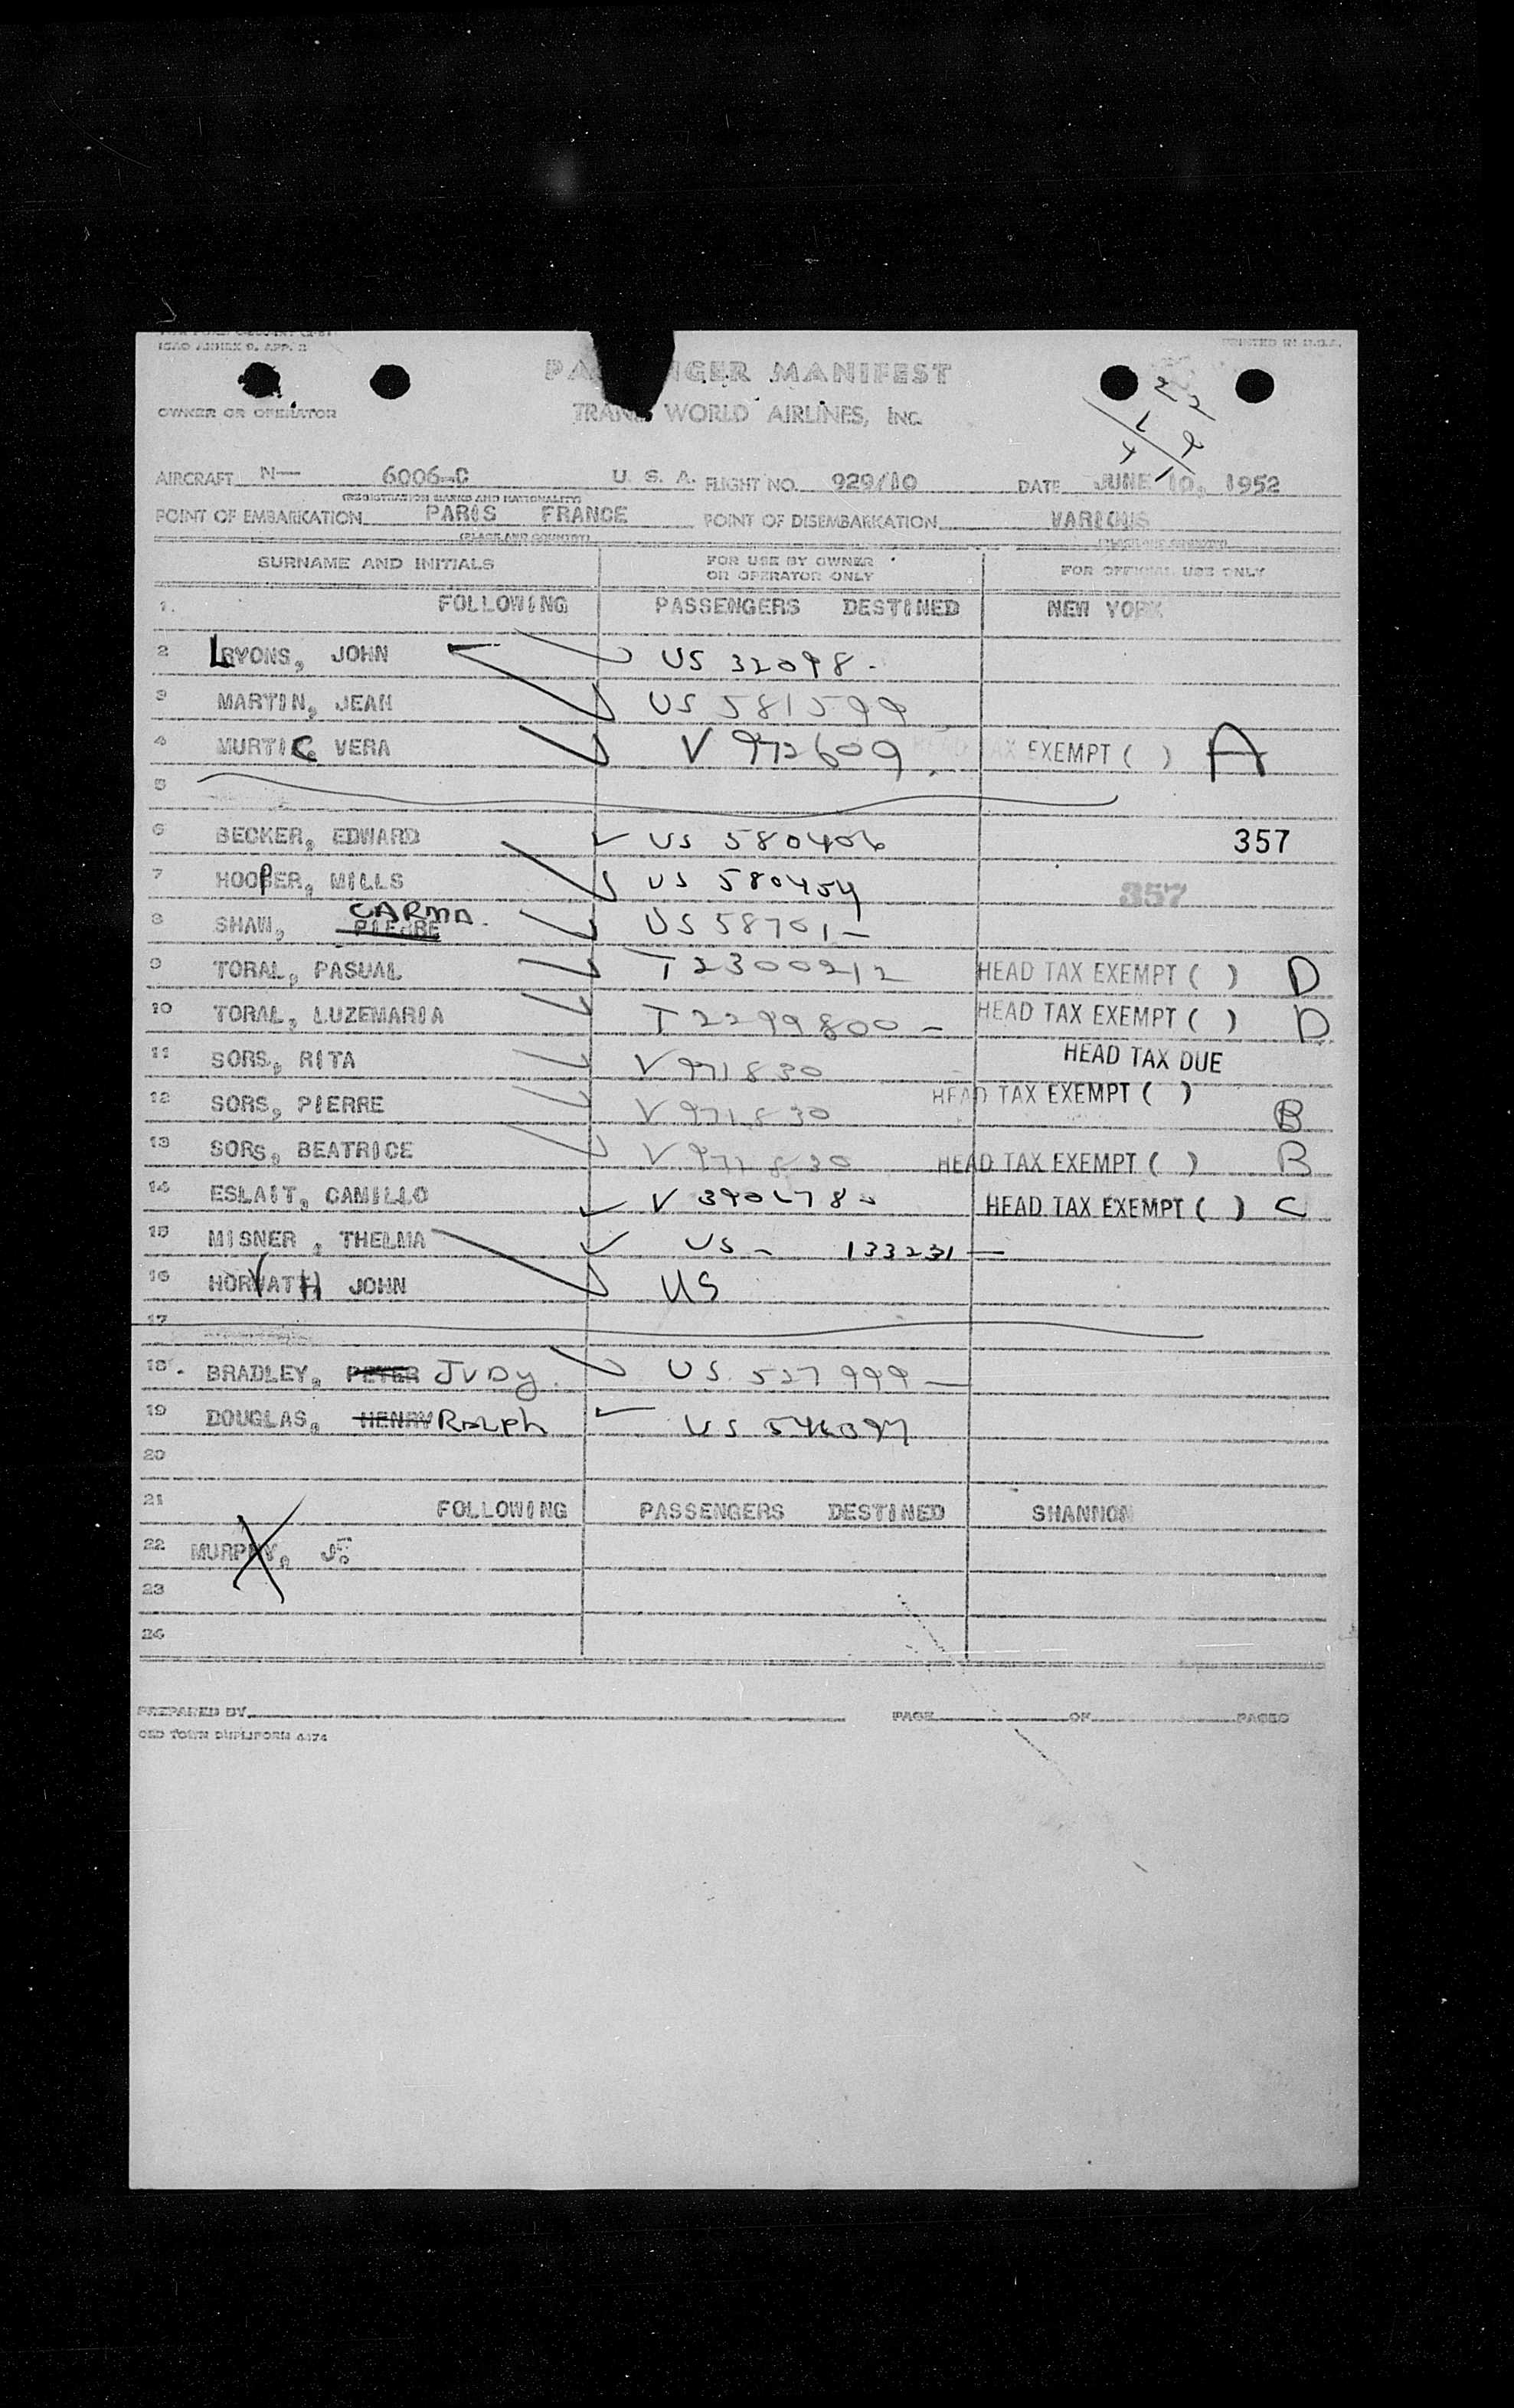 ICAO ANNEX 9, APP. 2
PRINTED IN U.S.A.
PA NGER MANIFEST
TRANS WORLD AIRLINES, Inc.
OWNER OR OPERATOR
AIRCRAFT N— 6006-C U. S. A. FLIGHT NO. 929/10 DATE JUNE 10, 1952
(REGISTRATION MARKS AND NATIONALITY)
POINT OF EMBARKATION PARIS FRANCE POINT OF DISEMBARKATION VARIOUS
(PLACE AND COUNTRY) (PLACE AND COUNTRY)
SURNAME AND INITIALS FOR USE BY OWNER OR OPERATOR ONLY FOR OFFICIAL USE ONLY
1. FOLLOWING PASSENGERS DESTINED NEW YORK
2 LYONS, JOHN US 32098.
3 MARTIN, JEAN US 581599
4 MURTIC, VERA V 972609 HEAD TAX EXEMPT ( ) A
5
6 BECKER, EDWARD US 580406 357
7 HOOPER, MILLS US 580454 357
8 SHAW, PIERRE CARMA. US 58701—
9 TORAL, PASUAL T 2300212 HEAD TAX EXEMPT ( ) D
10 TORAL, LUZEMARIA T 2299800— HEAD TAX EXEMPT ( ) D
11 SORS, RITA V 971830 HEAD TAX DUE
12 SORS, PIERRE V 971830 HEAD TAX EXEMPT ( ) B
13 SORS, BEATRICE V 971830 HEAD TAX EXEMPT ( ) B
14 ESLAIT, CAMILLO V HEAD TAX EXEMPT ( ) C
15 MISNER, THELMA US – 133231—
16 HORVATH JOHN US
17
18. BRADLEY, PETER JUDY. US. 527999—
19 DOUGLAS, HENRY Ralph US
20
21 FOLLOWING PASSENGERS DESTINED SHANNON
22 MURPHY, J.
23
24
PREPARED BY PAGE OF PAGES